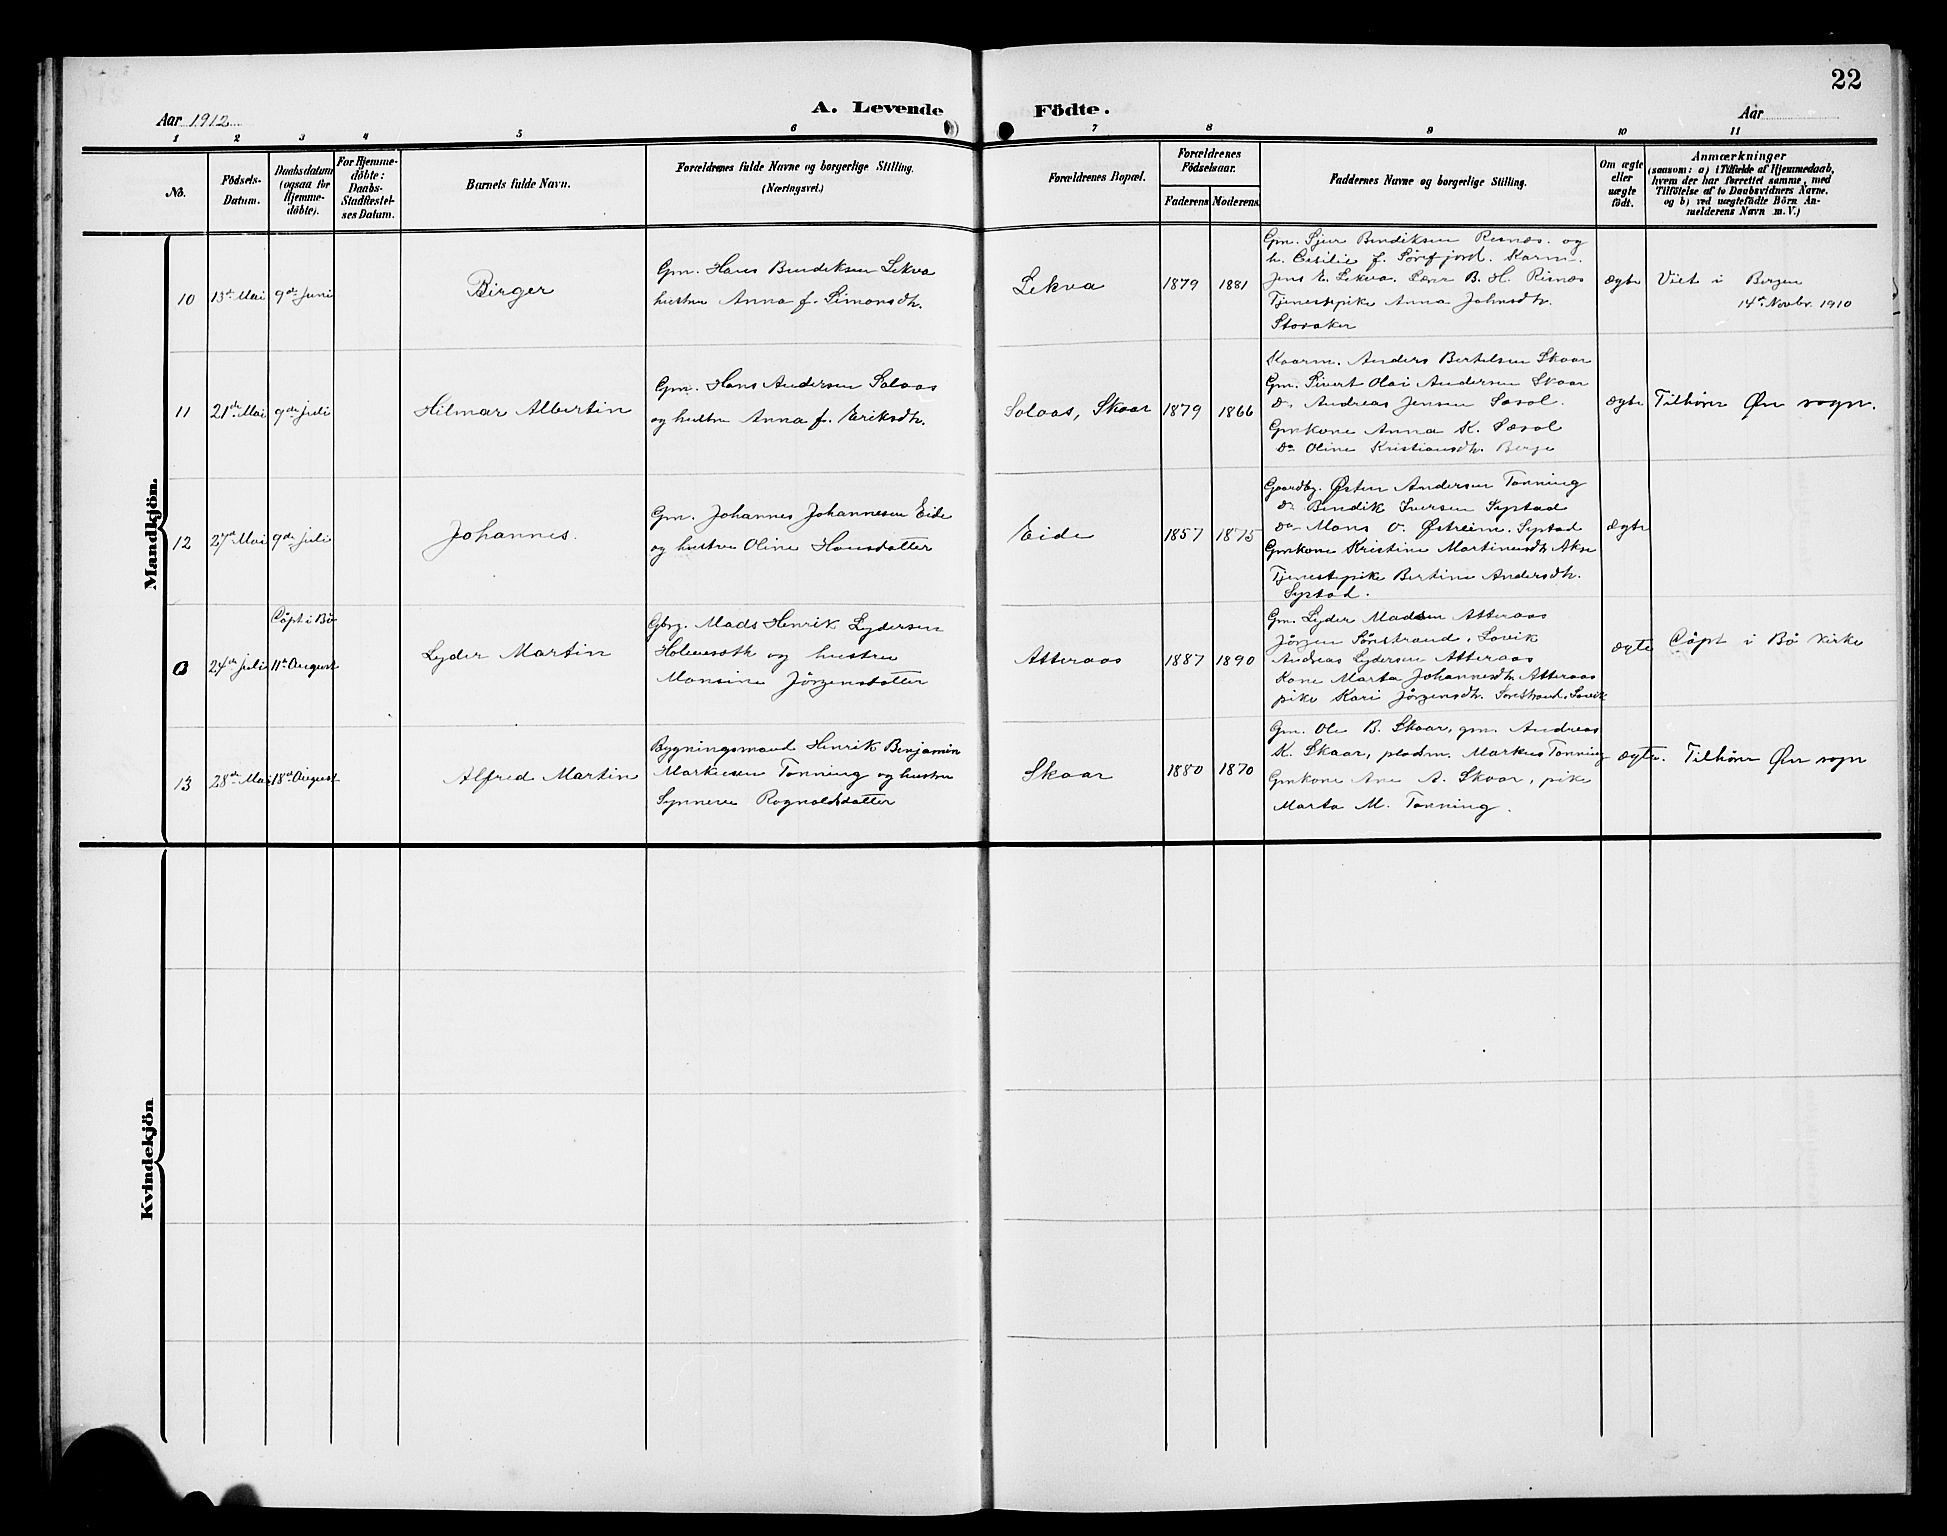 22
Aar 1912
A. Levende
Födte.
Aar
1 2 3 4 5 6 7 8 9 10 11
No.
Födsels-
Datum.
Daabsdatum
(ogsaa for
Hjemme-
döbte).
For Hjemme-
döbte:
Daabs-
Stadfæstel-
ses Datum.
Barnets fulde Navn.
Forældrenes fulde Navne og borgerlige Stilling.
(Næringsvei.)
Forældrenes Bopæl.
Forældrenes
Födselsaar.
Faderens
Moderens
Faddernes Navne og borgerlige Stilling.
Om ægte
eller
uægte
födt.
Anmærkninger
(saasom: a) i Tilfælde af Hjemmedaab,
hvem der har forrettet samme, med
Tilföielse af to Daabsvidners Navne.
og b) ved uægtefödte Börn An-
melderens Navn m. V.)
Mandkjön.
10
13de Mai
9de Juni
Birger
Gm. Hans Bendiksen Lekva
hustru Anna f. Simonsdtr.
Lekva
1879
1881
Gm. Sjur Bendiksen Risnæs. og
h. Cecilie f. Sörfjord. Kaarm.
Jens E. Lekva. Lærer B. H. Risnæs
Tjenestepike Anna Johnsdtr.
Storaker
ægte
Viet i Bergen
14de Novbr. 1910
11
21de Mai
9de juli
Hilmar Albertin
Gm. Hans Andersen Solaas
og hustru Anna f. Eriksdtr.
Solaas, Skaar
1879
1866
Kaarm. Anders Bertelsen Skaar
Gm. Sivert Olai Andersen Skaar
Do Andreas Jensen Sæsol.
Gmkone Anna K. Sæsol
Do Oline Kristiansdtr. Berge
ægte
Tilhører Øn sogn.
12
27de Mai
9de juli
Johannes.
Gm. Johannes Johannesen Eide
og hustru Oline Hansdatter
Eide
1857
1875
Gaardbr. Østen Andersen Tonning
Do Bendik Iversen Systad
Do Mons O. Østreim. Systad
Gmkone Kristine Martinusdtr. Akse
Tjenestepike Bertine Andersdtr.
Systad.
ægte
0
24de juli
Döpt i Bö
11te August
Lyder Martin
Gbrg. Mads Henrik Lydersen
og hustru
Monsine Jörgensdatter
Atteraas
1887
1890
Gm. Lyder Madsen Atteraas
Jörgen Sörestrand, Lovik
Andreas Lydersen Atteraas
Kone Marta Johannesdtr. Atteraas
pike Kari Jörgensdtr. Sörestrand. Lovik
ægte
Döpt i Bö kirke
13
28de Mai
18de August
Alfred Martin
Bygningsmand Henrik Benjamin
Markusen Tonning og hustru
Synneve Rognaldsdatter
Skaar
1880
1870
Gm. Ole B. Skaar, gm. Andreas
K. Skaar, pladm. Markus Tonning
Gmkone Ane A. Skaar, pike
Marta M. Tonning.
ægte.
Tilhører Øn sogn
Kvindekjön